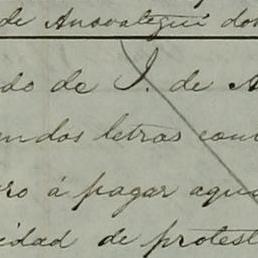 de Ansoategui don
do de J. de A
en dos letras cont
ro á pagar aqu
cidad de protest